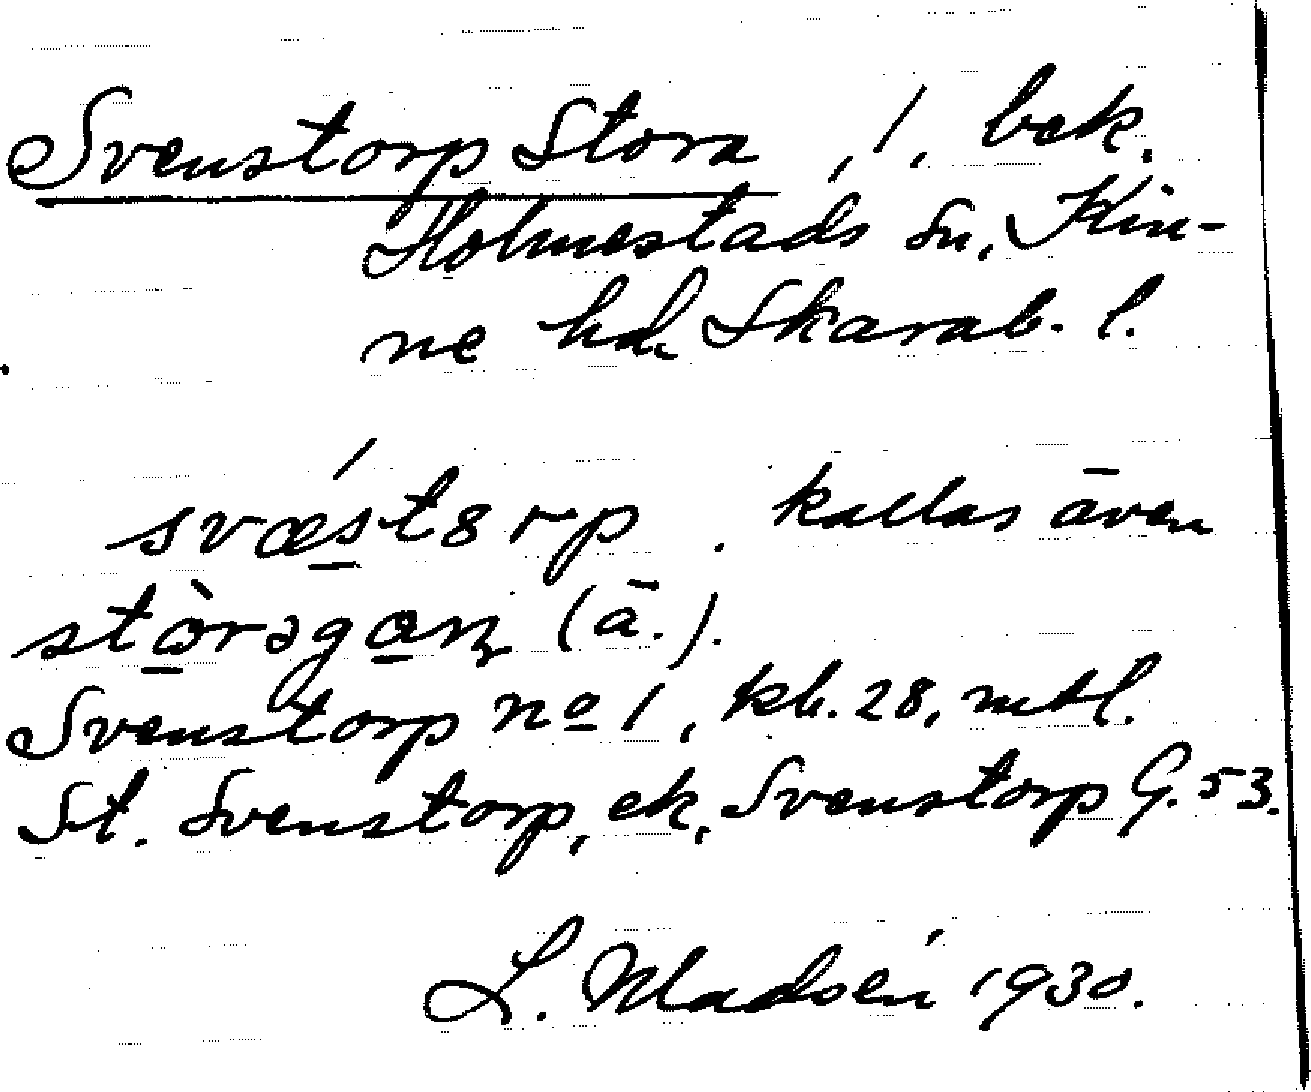 Svenstorp Stora, 1, bek.
Holmestads sn, Kin-
ne hd, Skarab. l.
svǽ̲st8rp. kallas även
stò̲rəga̲ɳ (ä.).
Svenstorp nº 1, kb. 28, mtl.
St. Svenstorp, ek, Svenstorp G. 53.
L. Madsén 1930.